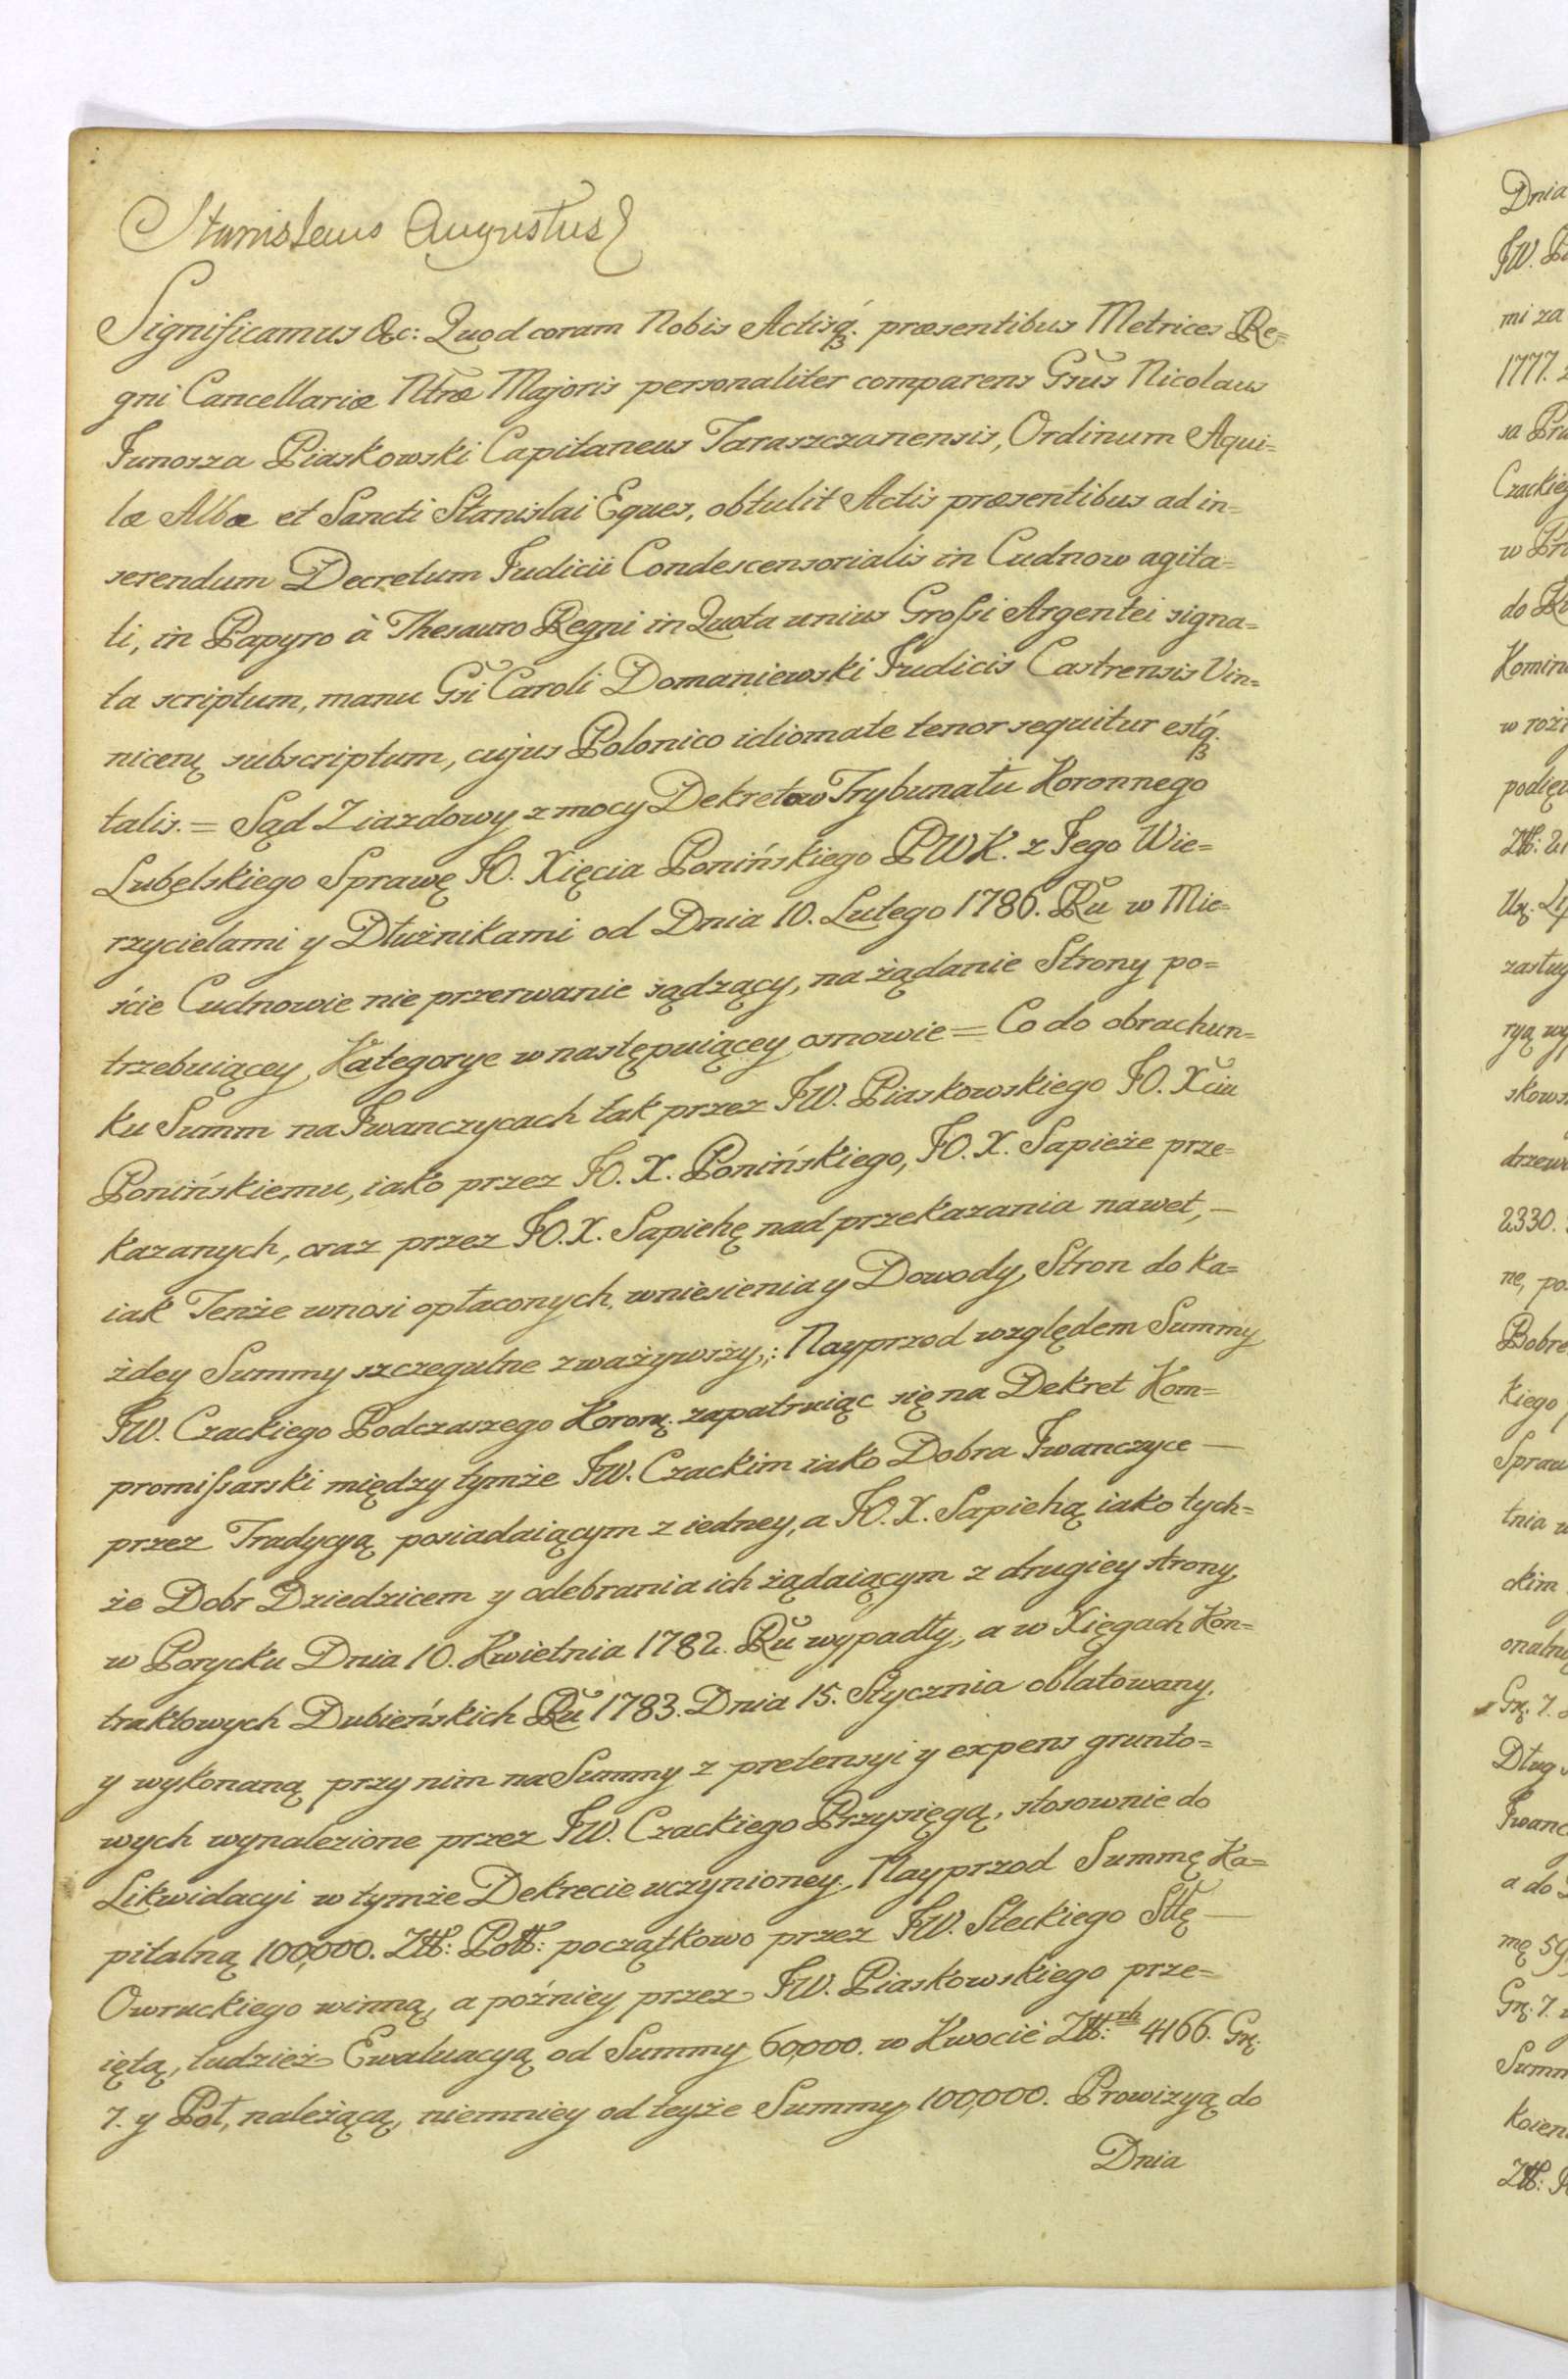 Stanislaus Augustus
Significamus &c: Quod coram Nobis Actisq́. præsentibus Metrices Re=
gni Cancellariæ Ntræ Majoris personaliter comparens Gsus Nicolaus
Junosza Piaskowski Capitaneus Taraszczanensis, Ordinum Aqui=
læ Albæ et Sancti Stanislai Eques, obtulit Actis præsentibus ad in=
serendum Decretum Judicii Condescensorialis in Cudnow agita=
ti, in Papyro à Thesauro Regni in Quota unius Grossi Argentei signa=
ta scriptum, manu Gsi Caroli Domaniewski Judicis Castrensis Vin=
nicen̨ subscriptum, cujus Polonico idiomate tenor sequitur estq́.
talis. = Sąd Ziazdowy z mocy Dekretow Trybunału Koronnego
Lubelskiego Sprawę JO. Xięcia Ponińskiego PWK. z Jego Wie=
rzycielami y Dłużnikami od Dnia 10. Lutego 1786. Ru w Mie=
ście Cudnowie nie przerwanie sądzący, na żądanie Strony po=
trzebuiącey, Kategorye w następuiącey osnowie = Co do obrachun=
ku Summ na Iwanczycach tak przez JW. Piaskowskiego JO. Xciu
Ponińskiemu, iako przez JO. X. Ponińskiego, JO. X. Sapieże prze=
kazanych, oraz przez JO. X. Sapiehę nad przekazania nawet, —
iak Tenże wnosi opłaconych, wniesienia y Dowody, Stron do ka=
żdey Summy szczegulne zważywszy,: Nayprzod względem Summy
JW. Czackiego Podczaszego Koron̨. zapatruiąc się na Dekret Kom=
promissarski między tymże JW. Czackim iako Dobra Iwanczyce —
przez Tradycyą posiadaiącym z iedney, a JO. X. Sapiehą iako tych=
że Dobr Dziedzicem y odebrania ich żądaiącym z drugiey strony,
w Porycku Dnia 10. Kwietnia 1782. Ru wypadły, a w Xięgach Kon=
traktowych Dubieńskich Ru 1783. Dnia 15. Stycznia oblatowany,
y wykonaną przy nim na Summy z pretensyi y expens grunto=
wych wynalezione przez JW. Czackiego Przysięgą, stosownie do
Likwidacyi w tymże Dekrecie uczynioney. Nayprzod Summę Ka=
pitalną 100,000. Złł: Polł: początkowo przez JW. Steckiego Sttę —
Owruckiego winną, a poźniey przez JW. Piaskowskiego prze=
iętą, tudzież Ewaluacyą od Summy 60,000. w Kwocie Złł:ch 4166. Gr̨.
7. y Poł, należącą, niemniey od teyże Summy 100,000. Prowizyą do
Dnia
Dnia
mi za
1777.
Czackie
Komin
w rożn
2330.
ne, po
Kiego
Spraw
tnia w
ckim
Gr̨. 7.
Dług
Iwanc
a do
mę 59
Gr̨. 7.
Summ